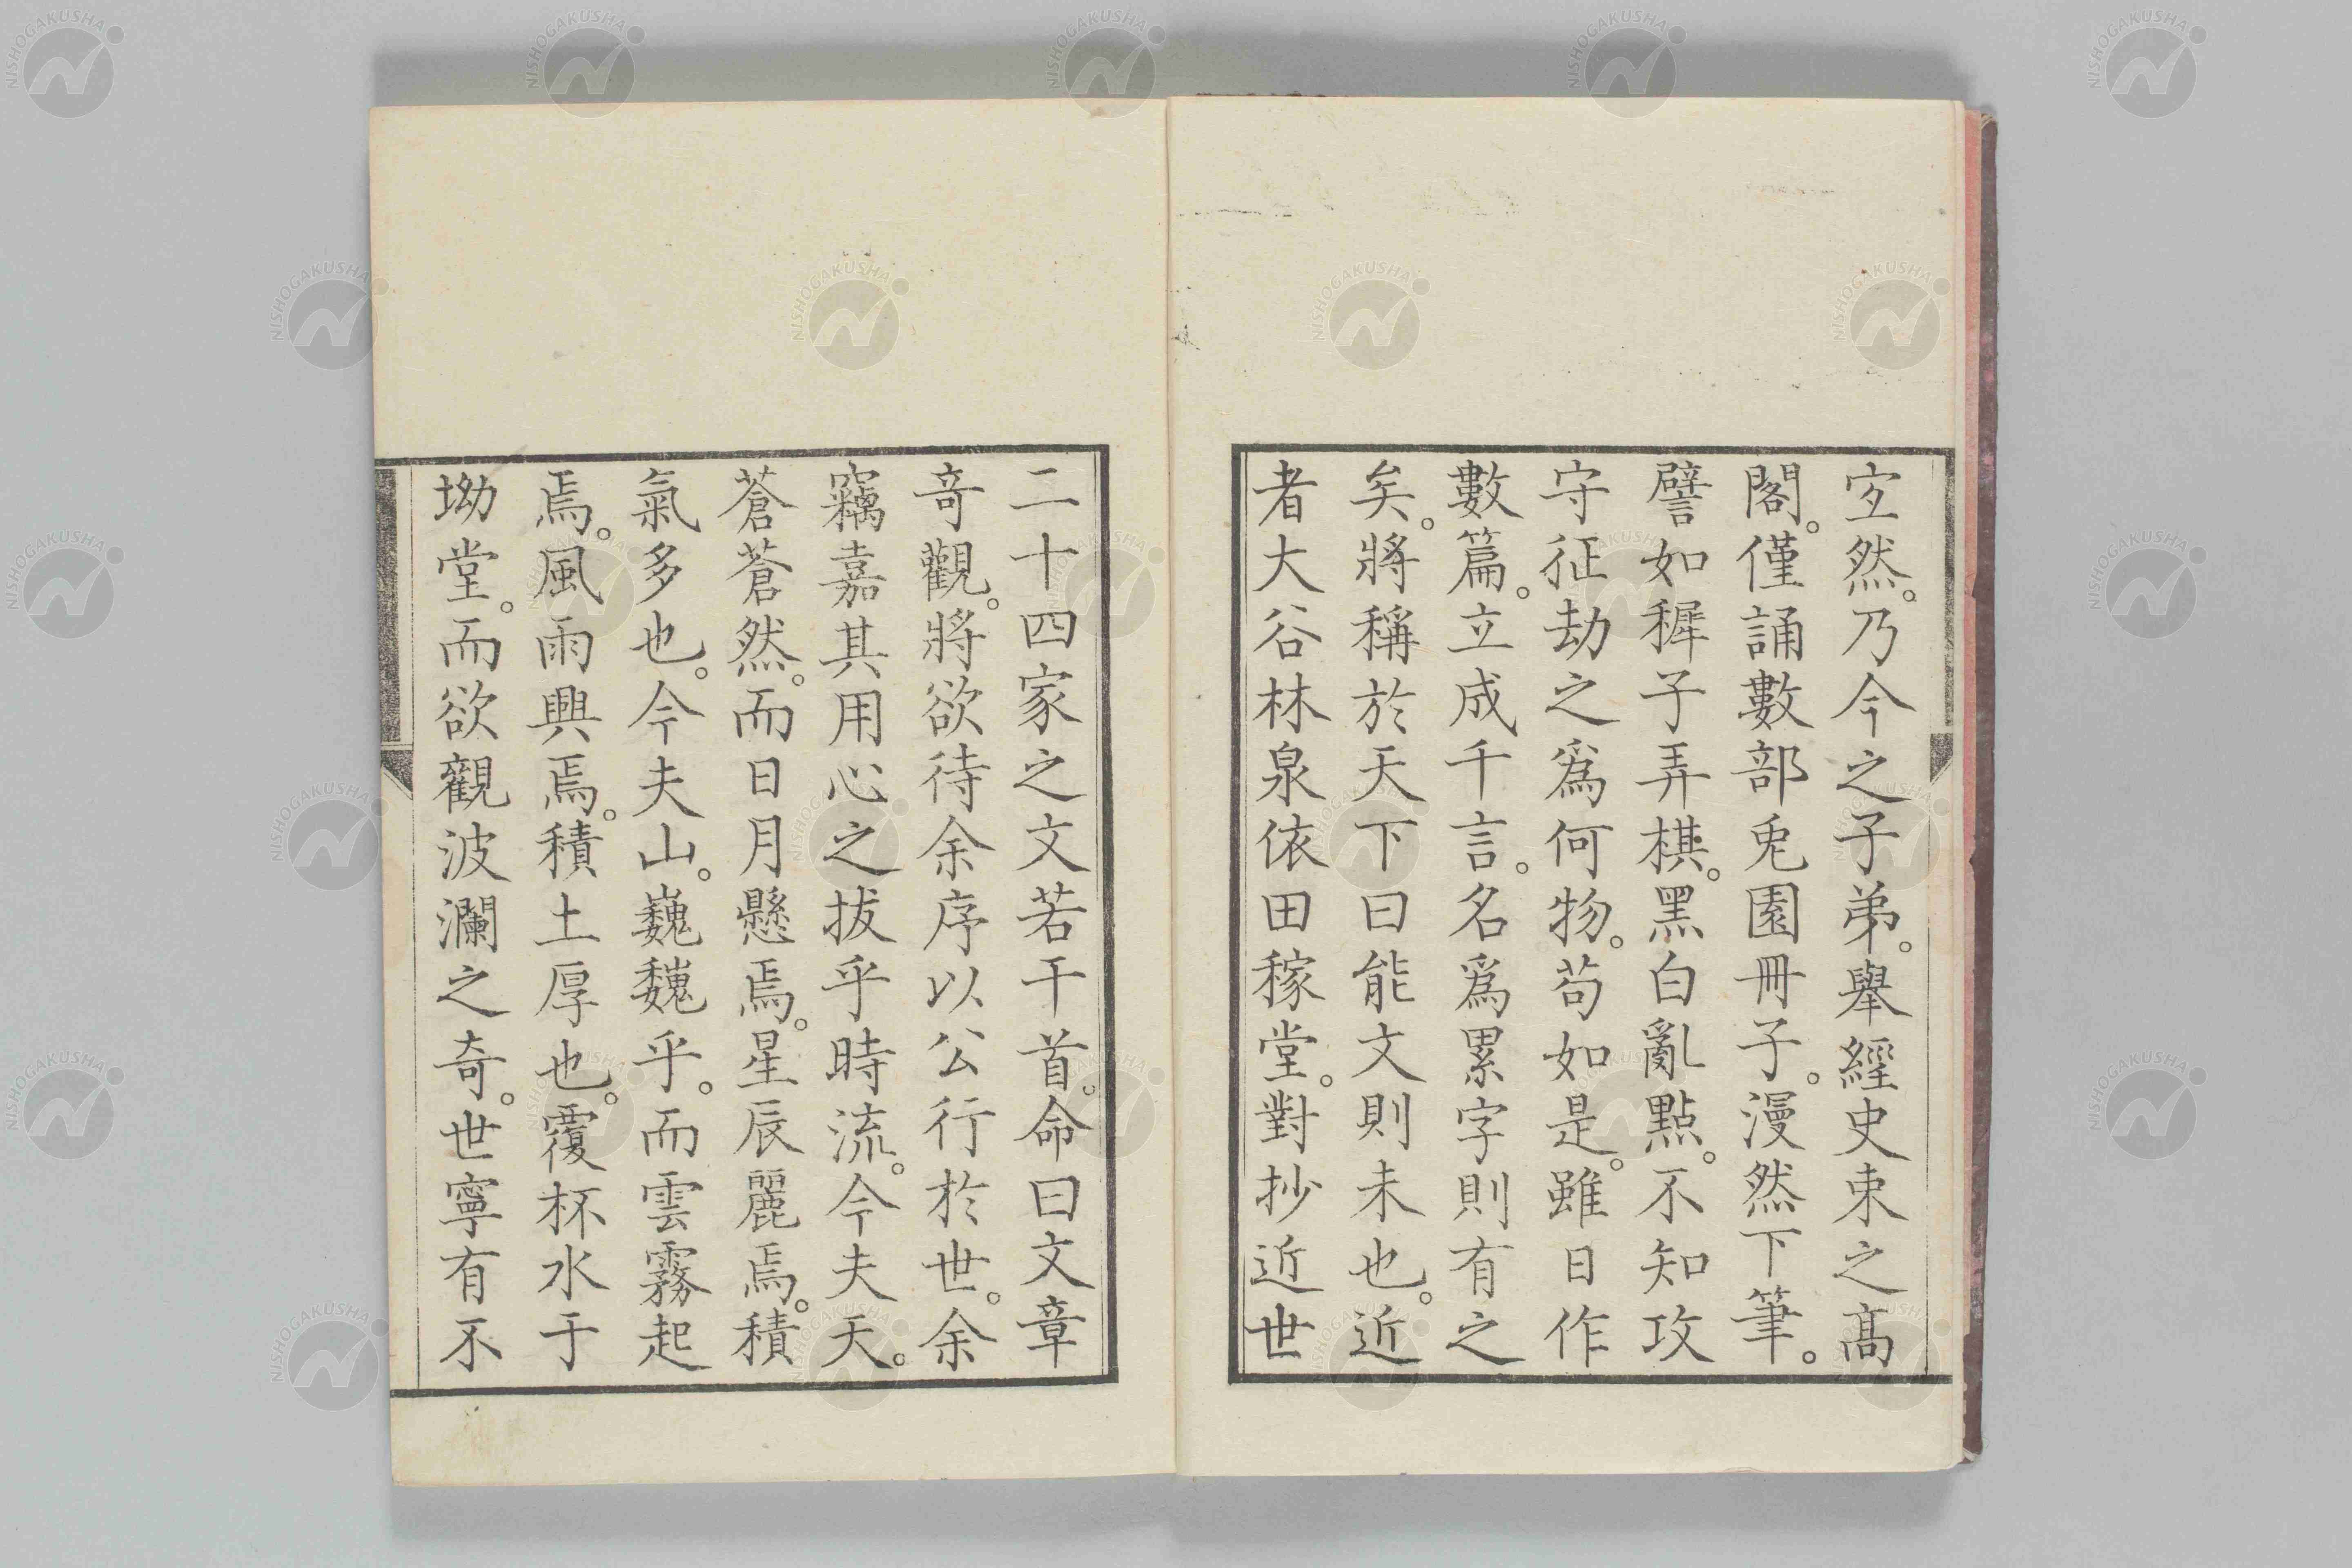 宐然。乃今之子弟。舉經史束之髙
閣。僅誦數部兎園冊子。漫然下筆。
譬如穉子弄棋。黑白亂點。不知攻
守征劫之爲何物。苟如是。雖日作
數篇。立成千言。名爲累字則有之
矣。將稱於天下曰能文則未也。近
者大谷林泉依田稼堂。對抄近世
二十四家之文若干首。命曰文章
奇觀。將欲待余序以公行於世。余
竊嘉其用心之拔乎時流。今夫天。
蒼蒼然。而日月懸焉。星辰麗焉。積
氣多也。今夫山。巍巍乎。而雲霧起
焉。風雨興焉。積土厚也。覆杯水于
坳堂。而欲觀波瀾之奇。世寧有不
NISHOGAKUSHA